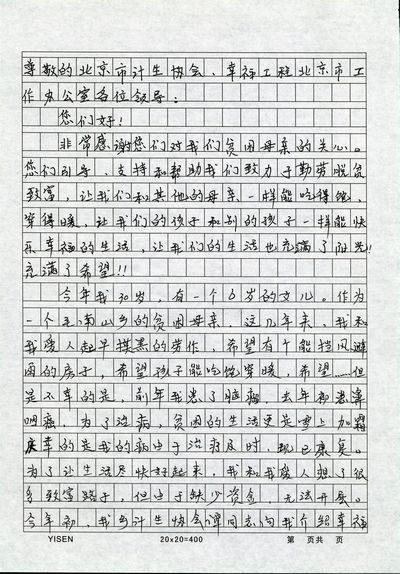 尊敬的北京市计生协会、幸福工程北京市工
作办公室各位领导：
您们好！
非常感谢您们对我们贫困母亲的关心。
您们引导、支持和帮助我们致力于勤劳脱贫
致富，让我们和其他的母亲一样能吃得饱、
穿得暖，让我们的孩子和别的孩子一样能快
乐幸福的生活，让我们的生活也充满了阳光！
充满了希望！！
今年我30岁，有一个6岁的女儿。作为
一个 南山乡的贫困母亲，这几年来，我和
我爱人起早摸黑的劳作，希望有个能挡风避
雨的房子，希望孩子能吃饱穿暖，希望……但
是不幸的是，前年我患了脑瘤，去年都患
咽癌，为了治病，贫困的生活更是雪上加霜
庆幸的是我的病由于治疗及时，现已康复。
为了让生活尽快好起来，我和我爱人想了很
多致富路子，但由于缺少资金，无法开展。
今年初，我乡计生协会谭同志向我介绍幸福
YISEN 20×20=400 第 页共 页